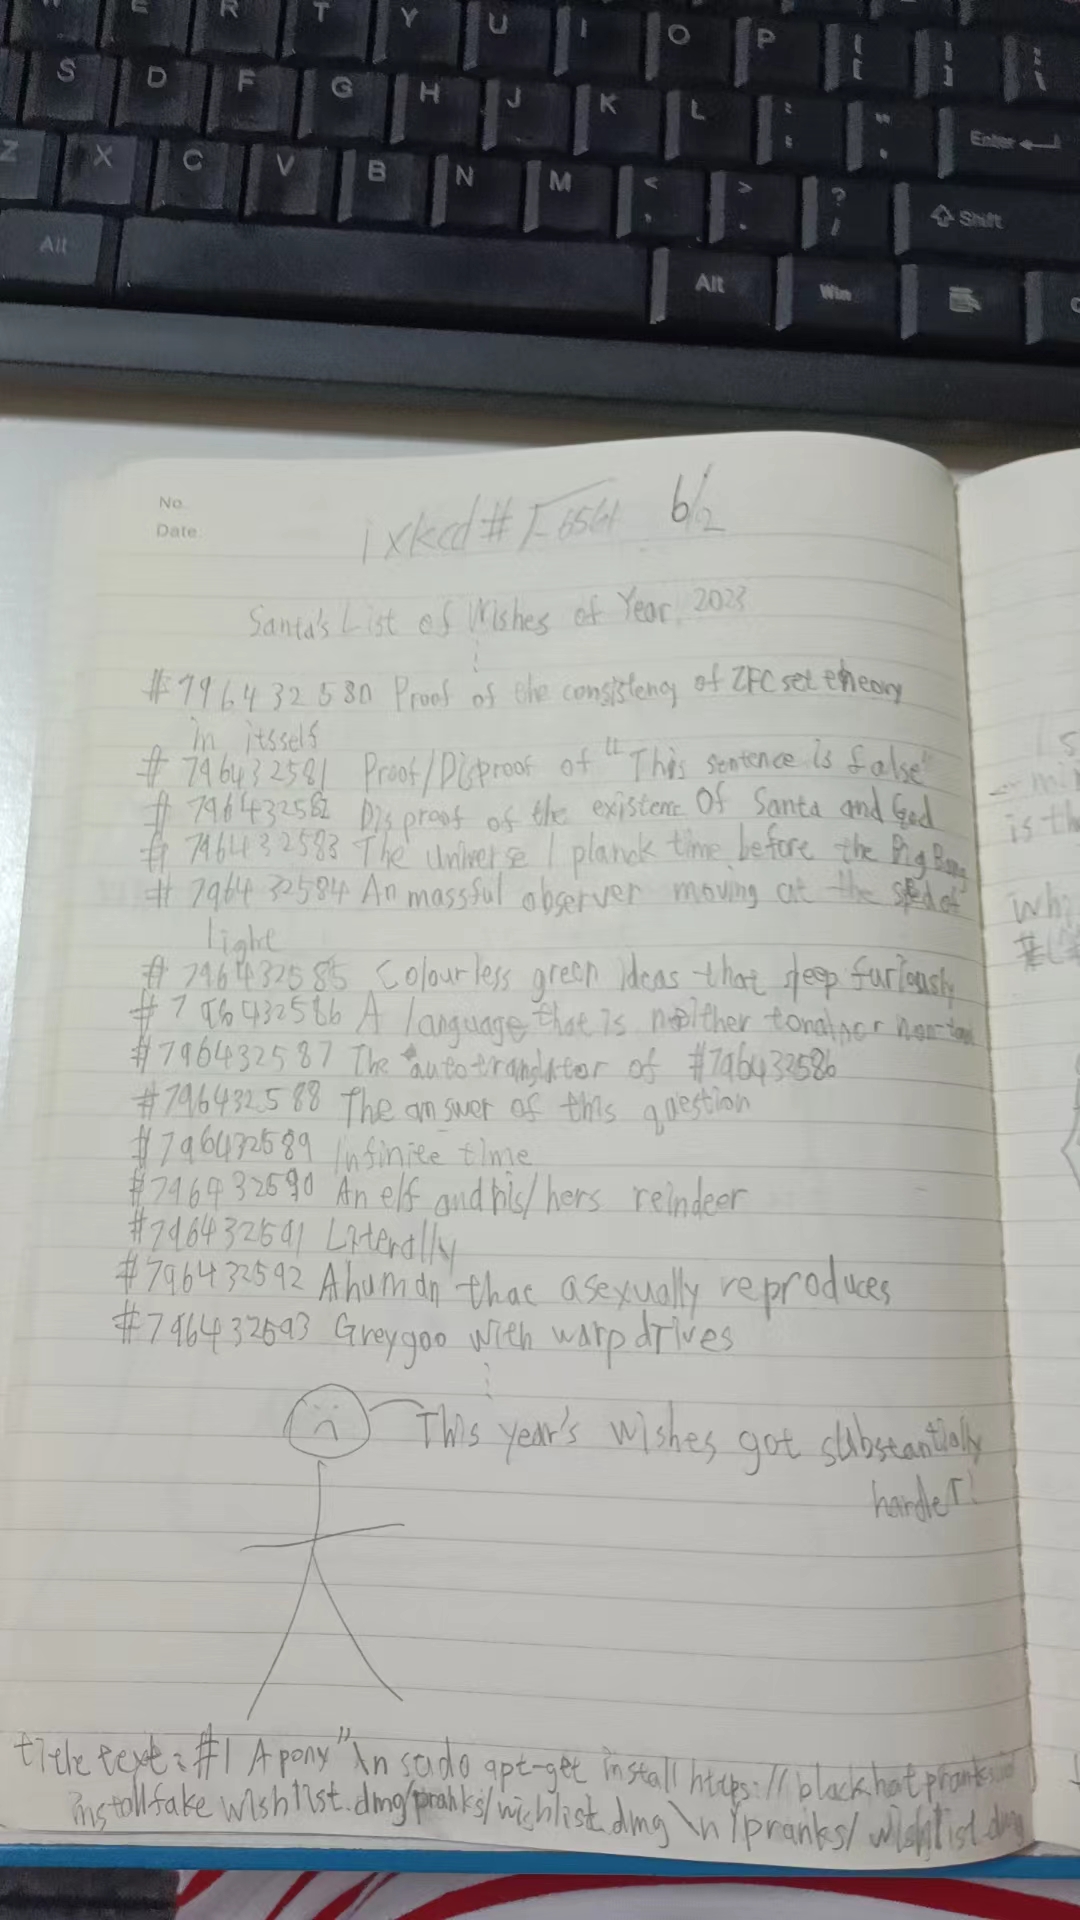 E R T Y U I O P { [ } ]
S D F G H J K L : ; " Enter
Z X C V B N M < , > . ? / Shift
Alt Alt Win
No.
Date.
ixkcd# 6561 6/2
Santa's List of Wishes of Year 2023
⋮
#796432580 Proof of the consistency of ZFC set theory
in itsself
#796432581 Proof/Disproof of "This sentence is false"
#796432582 Disproof of the existenc Of Santa and God
#796432583 The Universe 1 planck time before the Big Bang
#796432584 An massful observer moving at the of
light
#796432585 Colourless green ideas that sleep furiously
#796432586 A language that is neither tonal nor
#796432587 The autotranslator of #796432586
#796432588 The answer of this question
#796432589 Infinite time
#796432590 An elf and his/hers reindeer
#796432591 Literally
#796432592 A human that asexually reproduces
#796432593 Greygoo with warp drives
⋮
This year's wishes got substantially
harder!
title text: #1 A pony"\n sudo apt-get install https://blackhatpranks
installfake wishlist.dmg/pranks/wishlist.dmg \n /pranks/ wishlist.dmg
is th